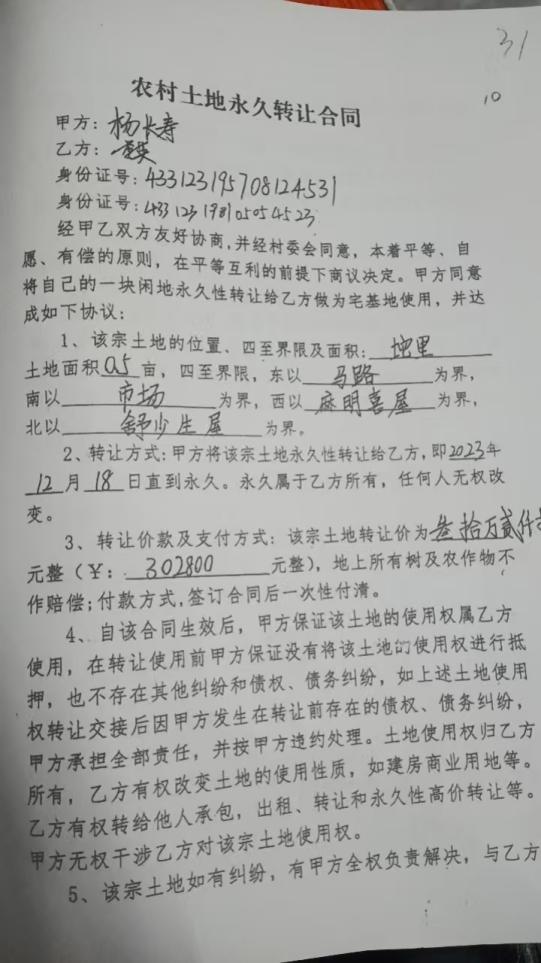 31
10
农村土地永久转让合同
甲方：杨长寿
乙方：
身份证号：433123195708124531
身份证号：433123198105054523
经甲乙双方友好协商，并经村委会同意，本着平等、自
愿、有偿的原则，在平等互利的前提下商议决定。甲方同意
将自己的一块闲地永久性转让给乙方做为宅基地使用，并达
成如下协议：
1、该宗土地的位置、四至界限及面积：地里
土地面积0.5亩，四至界限，东以马路为界，
南以市场为界，西以麻明喜屋为界，
北以舒少生屋为界。
2、转让方式：甲方将该宗土地永久性转让给乙方，即2023年
12月18日直到永久。永久属于乙方所有，任何人无权改
变。
3、转让价款及支付方式：该宗土地转让价为叁拾万贰仟捌
元整（¥：302800元整），地上所有树及农作物不
作赔偿；付款方式，签订合同后一次性付清。
4、自该合同生效后，甲方保证该土地的使用权属乙方
使用，在转让使用前甲方保证没有将该土地的使用权进行抵
押，也不存在其他纠纷和债权、债务纠纷，如上述土地使用
权转让交接后因甲方发生在转让前存在的债权、债务纠纷，
甲方承担全部责任，并按甲方违约处理。土地使用权归乙方
所有，乙方有权改变土地的使用性质，如建房商业用地等。
乙方有权转给他人承包，出租、转让和永久性高价转让等。
甲方无权干涉乙方对该宗土地使用权。
5、该宗土地如有纠纷，有甲方全权负责解决，与乙方